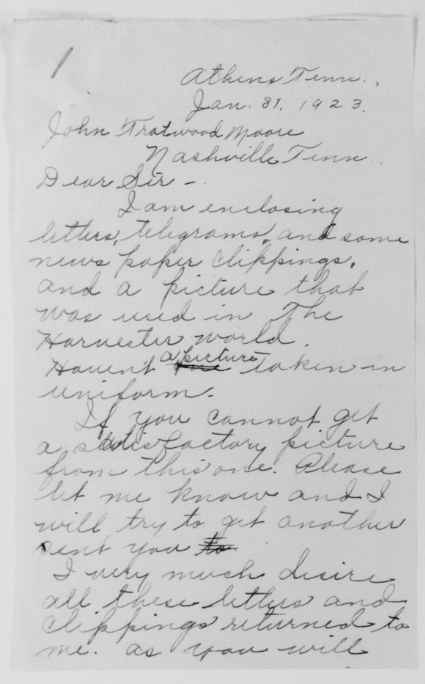 1
Athens Tenn.,
Jan. 31, 1923.
John Trotwood Moore
Nashville Tenn.
Dear Sir -
I am enclosing
letters, telegrams, and some
news paper clippings,
and a picture that
was used in The
Harvester world.
Havent a picture taken in
uniform.
If you cannot get
a satisfactory picture
from this one. Please
let me know and I
will try to get another
sent you to
I very much desire
all these letters and
clippings returned to
me. as you will